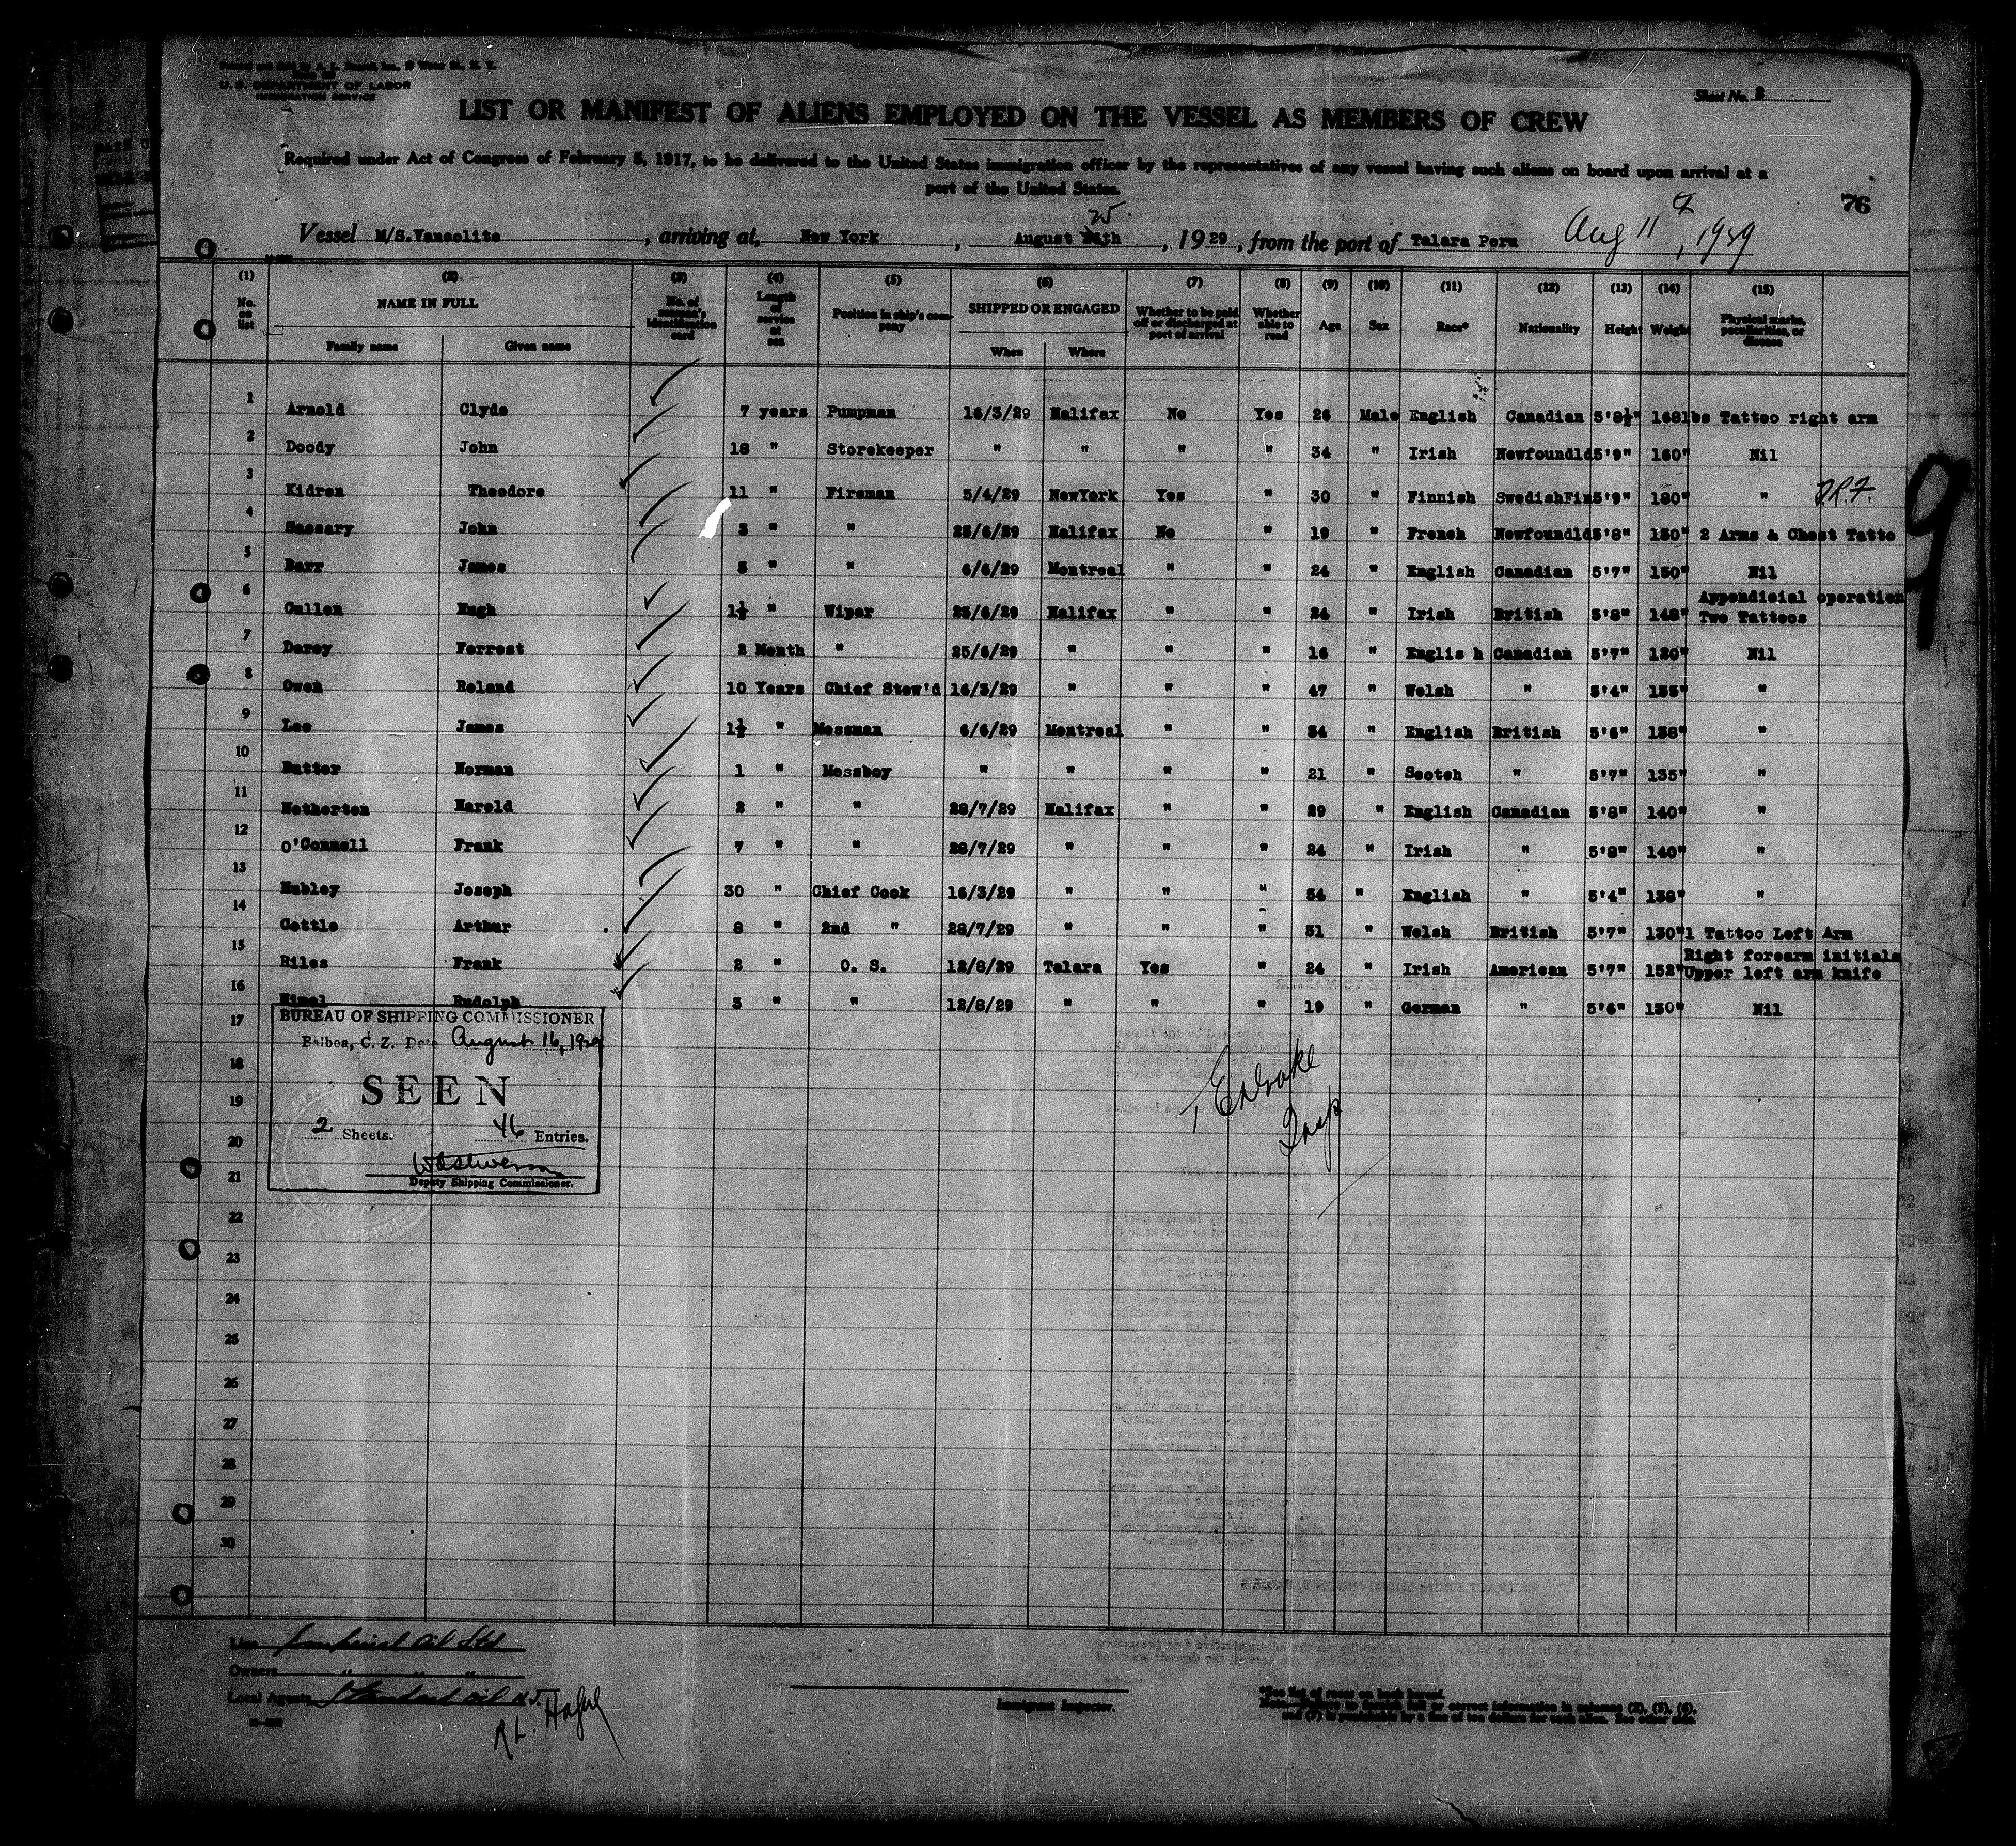 U. S. DEPARTMENT OF LABOR
IMMIGRATION SERVICE
Sheet No. 2
LIST OR MANIFEST OF ALIENS EMPLOYED ON THE VESSEL AS MEMBERS OF CREW
Required under Act of Congress of February 5, 1917, to be delivered to the United States immigration officer by the representatives of any vessel having such aliens on board upon arrival at a
port of the United States.
76
25
Vessel M/S.Vancolite, arriving at, New York, August 24th, 1929, from the port of Talara Peru Aug 11, 1929
(1) (2) (3) (4) (5) (6) (7) (8) (9) (10) (11) (12) (13) (14) (15)
No. on list NAME IN FULL Family name Given name No. of seaman's identification card Length of service at sea Position in ship's company SHIPPED OR ENGAGED When Where Whether to be paid off or discharged at port of arrival Whether able to read Age Sex Race* Nationality Height Weight Physical marks, peculiarities, or disease
1 Arnold Clyde 7 years Pumpman 16/3/29 Halifax No Yes 26 Male English Canadian 5'8½" 168lbs Tattoo right arm
2 Doody John 18 " Storekeeper " " " " 34 " Irish Newfoundld 5'9" 160" Nil
3 Kidren Theodore 11 " Fireman 5/4/29 NewYork Yes " 30 " Finnish SwedishFin 5'9" 180" "
4 Sassary John 3 " " 25/6/29 Halifax No " 19 " French Newfoundld 5'8" 150" 2 Arms & Chest Tatto
5 Barr James 5 " " 6/6/29 Montreal " " 24 " English Canadian 5'7" 150" Nil
6 Cullen Hugh 1½ " Wiper 25/6/29 Halifax " " 24 " Irish British 5'8" 148" Appendicial operation Two Tattoos
7 Darey Forrest 2 Month " 25/6/29 " " " 16 " Englis h Canadian 5'7" 120" Nil
8 Owen Roland 10 Years Chief Stew'd 16/3/29 " " " 47 " Welsh " 5'4" 135" "
9 Lee James 1½ " Messman 6/6/29 Montreal " " 34 " English British 5'6" 138" "
10 Butter Norman 1 " Messboy " " " " 21 " Scotch " 5'7" 135" "
11 Netherton Harold 2 " " 28/7/29 Halifax " " 29 " English Canadian 5'8" 140" "
12 O'Connell Frank 7 " " 28/7/29 " " " 24 " Irish " 5'8" 140" "
13 Hubley Joseph 30 " Chief Cook 16/3/29 " " " 54 " English " 5'4" 138" "
14 Cottle Arthur 8 " 2nd " 28/7/29 " " " 31 " Welsh British 5'7" 130" 1 Tattoo Left Arm
15 Riles Frank 2 " O. S. 12/8/29 Talara Yes " 24 " Irish American 5'7" 152" Right forearm initials Upper left arm knife
16 Himel Rudolph 3 " " 12/8/29 " " " 19 " German " 5'6" 150" Nil
17
BUREAU OF SHIPPING COMMISSIONER
Balboa, C. Z. Date August 16, 1929
18
SEEN
19
2 Sheets. 46 Entries.
20
21
Deputy Shipping Commissioner.
22
23
24
25
26
27
28
29
30
Line Imperial Oil Ltd
Owners " " "
Local Agents Standard Oil NJ.
Immigrant Inspector.
*See list of races on back hereof.
Note.—Failure to furnish full or correct information in columns (2), (5), (6),
and (7) is punishable by a fine of ten dollars for each alien. See other side.